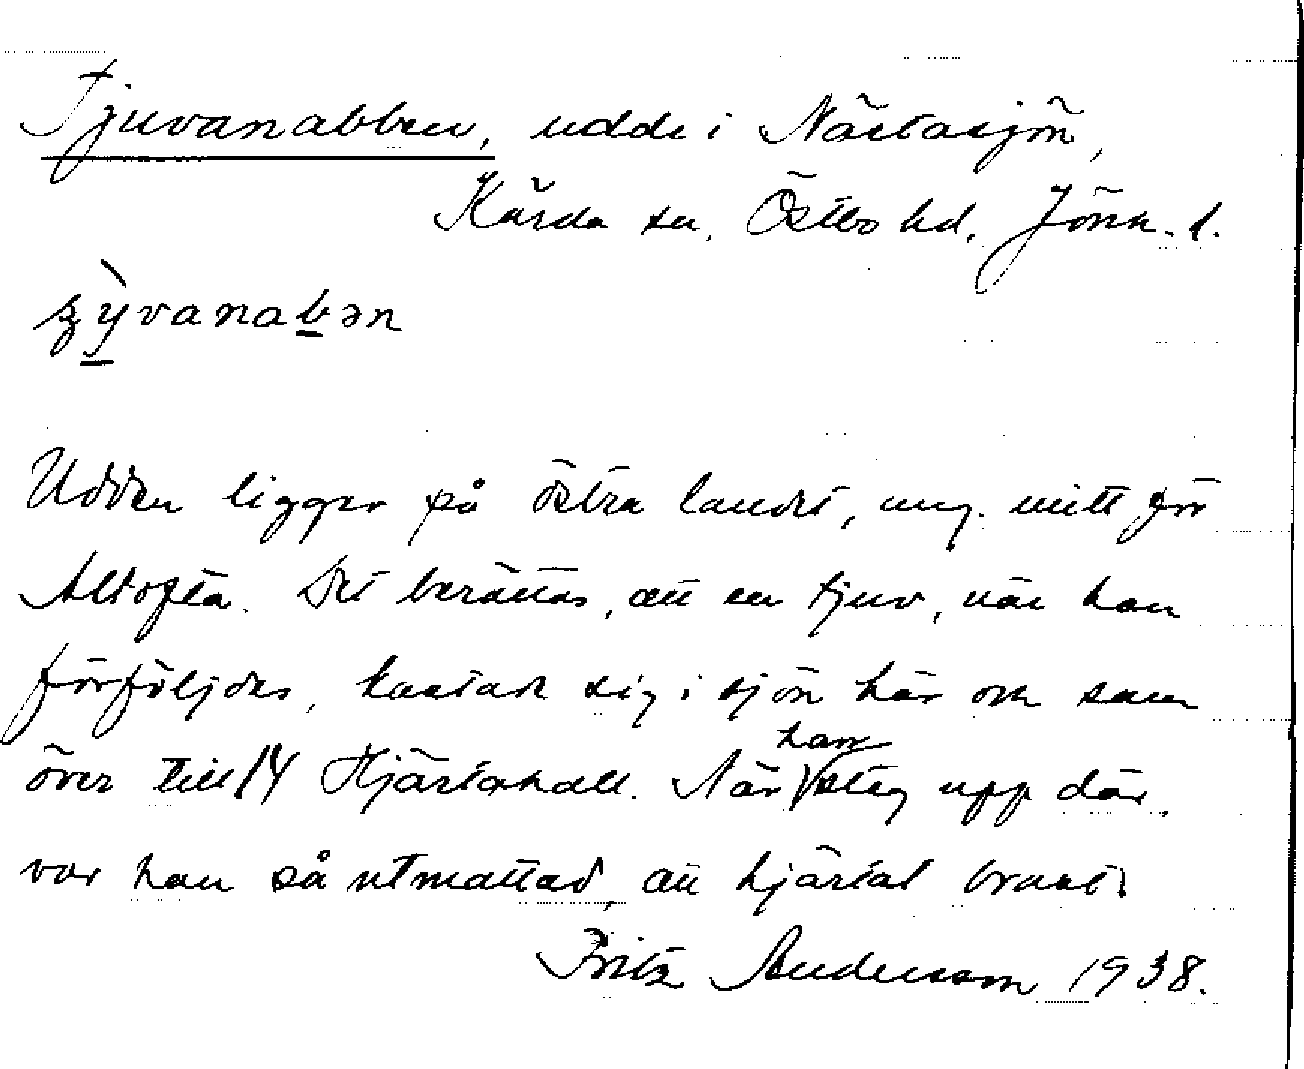 Tjuvanabben, udde i Nästasjön,
Kärda sn, Östbo hd, Jönk. l.
ȳvanabən
Udden ligger på östra landet, ung. mitt för
Altofta. Det berättas, att en tjuv, när han
förföljdes, kastade sig i sjön här och sam
över till Hjärtahall. När han steg upp där,
var han så utmattad, att hjärtat brast.
Fritz Andersson 1938.